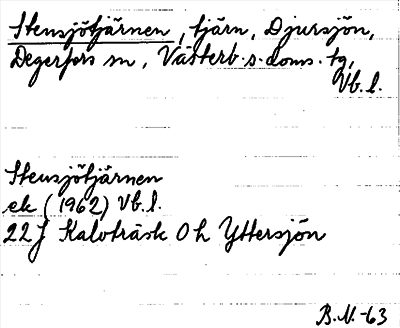 Stensjötjärnen, tjärn, Djursjön,
Degerfors sn, Västerb. s. doms. tg,
Vb. l.
Stensjötjärnen
ek (1962) Vb. l.
22J Kalvträsk 0h Yttersjön
B.N.-63